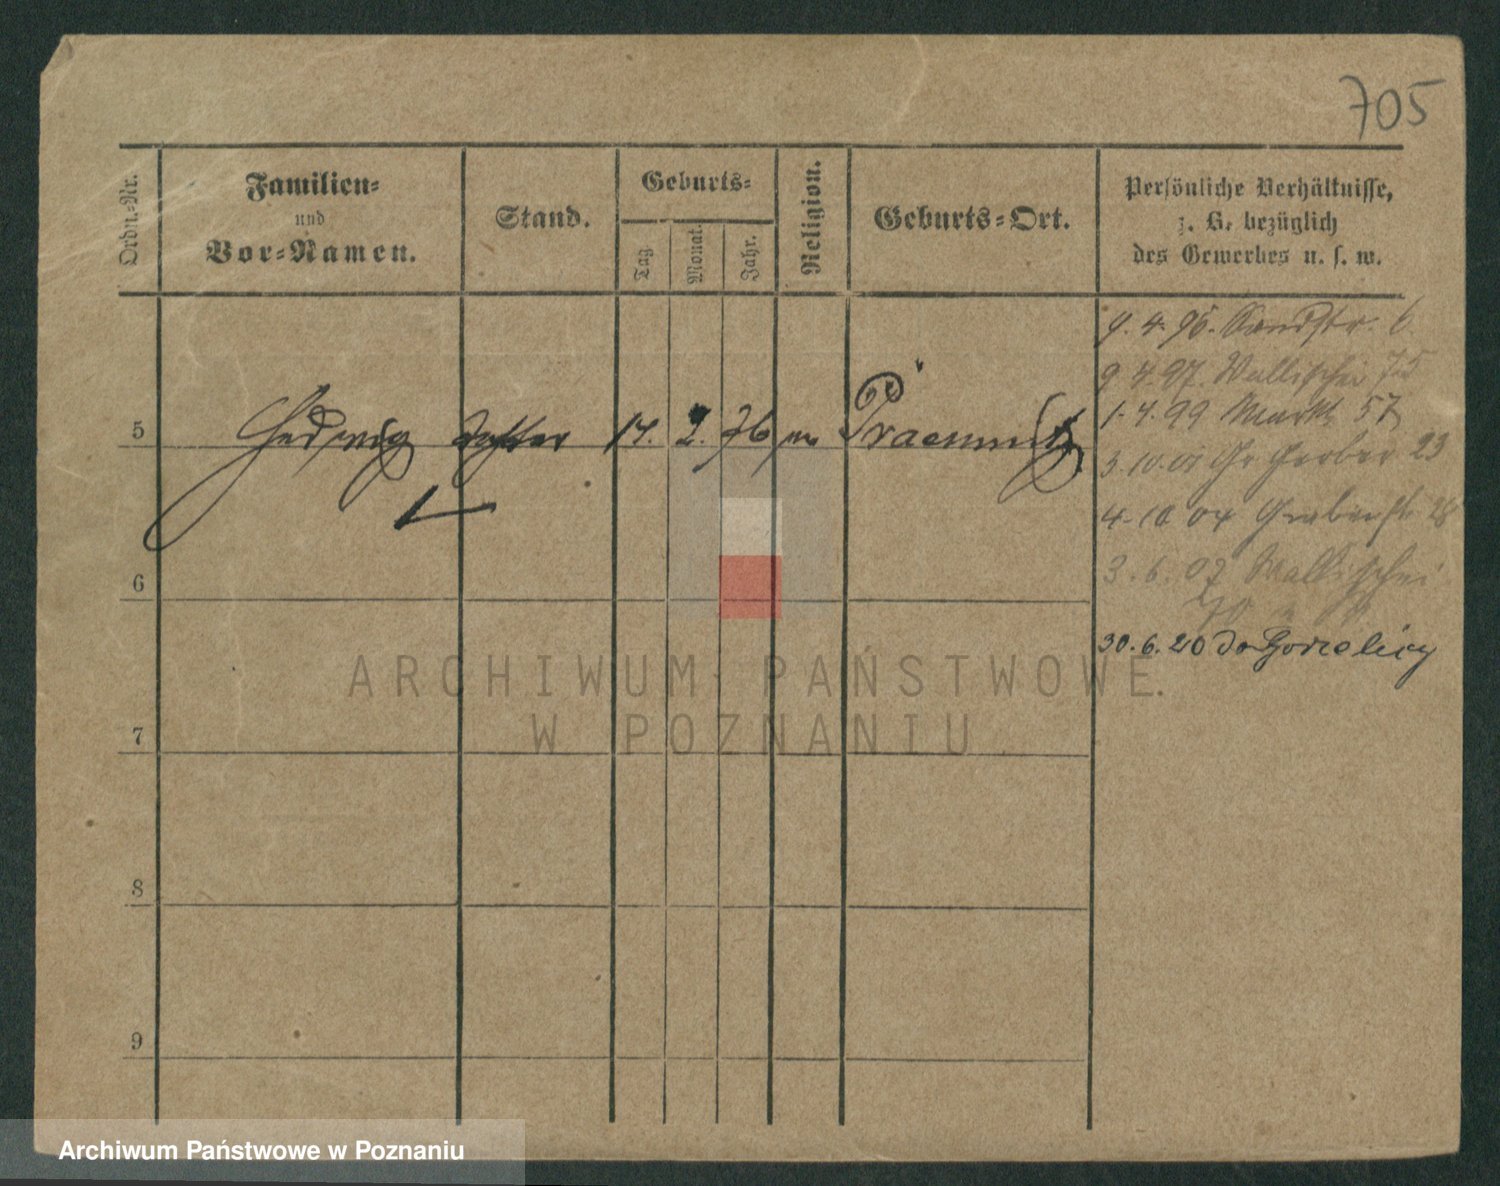 705
Ordn.-Nr.
Familien-
und
Vor-Namen.
Stand.
Geburts-
Tag
Monat.
Jahr.
Religion.
Geburts-Ort.
Persönliche Verhältnisse,
z. B. bezüglich
des Gewerbes u. s. w.
9. 4. 96. Sandstr. 6.
9 4. 97. Wallischei 75
1. 4. 99 Markt 57
5 Hedwig Tochter 14. 2. 76
3. 10. 01 Gr Gerber 23
4. 10 04 Grabenstr 28
6
3. 6. 07 Wallischei
70
30. 6. 20
7
8
9
ARCHIWUM PAŃSTWOWE
W POZNANIU
Archiwum Państwowe w Poznaniu